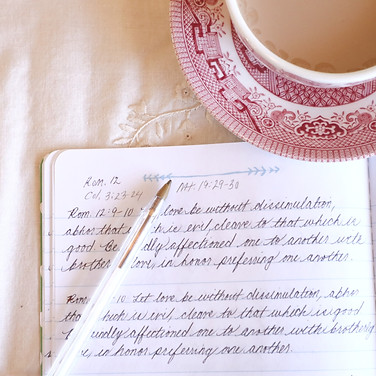 Rom. 12
Col. 3:23-24
Mt. 19:29-30
Rom. 12:9-10 love be without dissimulation,
abhor that is evil, cleave to that which is
good. Be kindly affectioned one to another with
brotherly love, in honor preferring one another.
10 Let love be without dissimulation, abhor
that is evil, cleave to that which is good
kindly affectioned one to another with brotherly
in honor preferring one another.